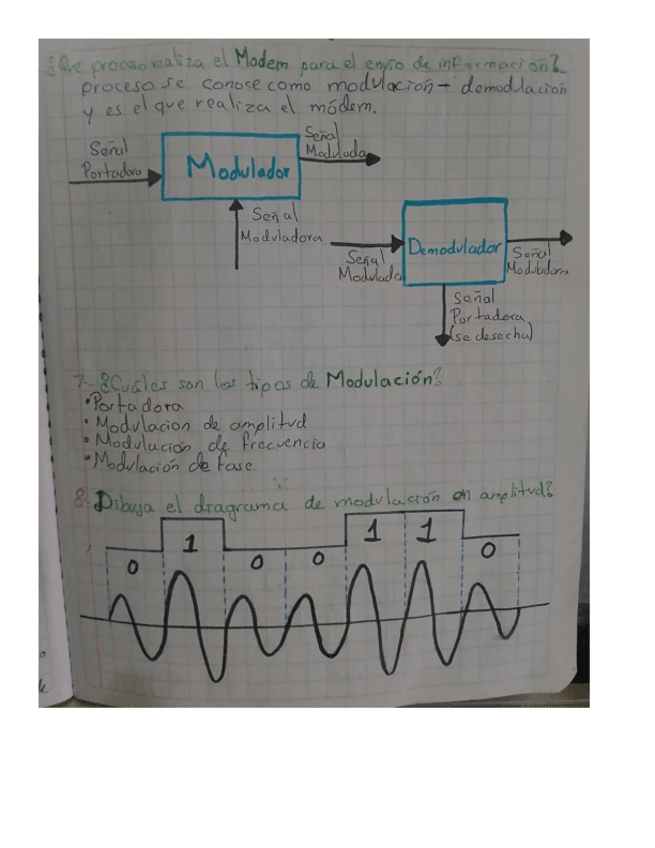 ¿Que proceso realiza el Modem para el envio de información?
proceso se conoce como modulacion - demodulacion
y es el que realiza el módem.
Señal
Portadora
Modulador
Señal
Modulada
Señal
Moduladora
Señal
Modulada
Demodulador
Señal
Moduladora
Señal
Portadora
(se desecha)
7.- ¿Cuáles son los tipos de Modulación?
• Portadora
• Modulacion de amplitud
• Modulación de frecuencia
• Modulación de fase.
8. Dibuja el diagrama de modulación en amplitud?
0 1 0 0 1 1 0